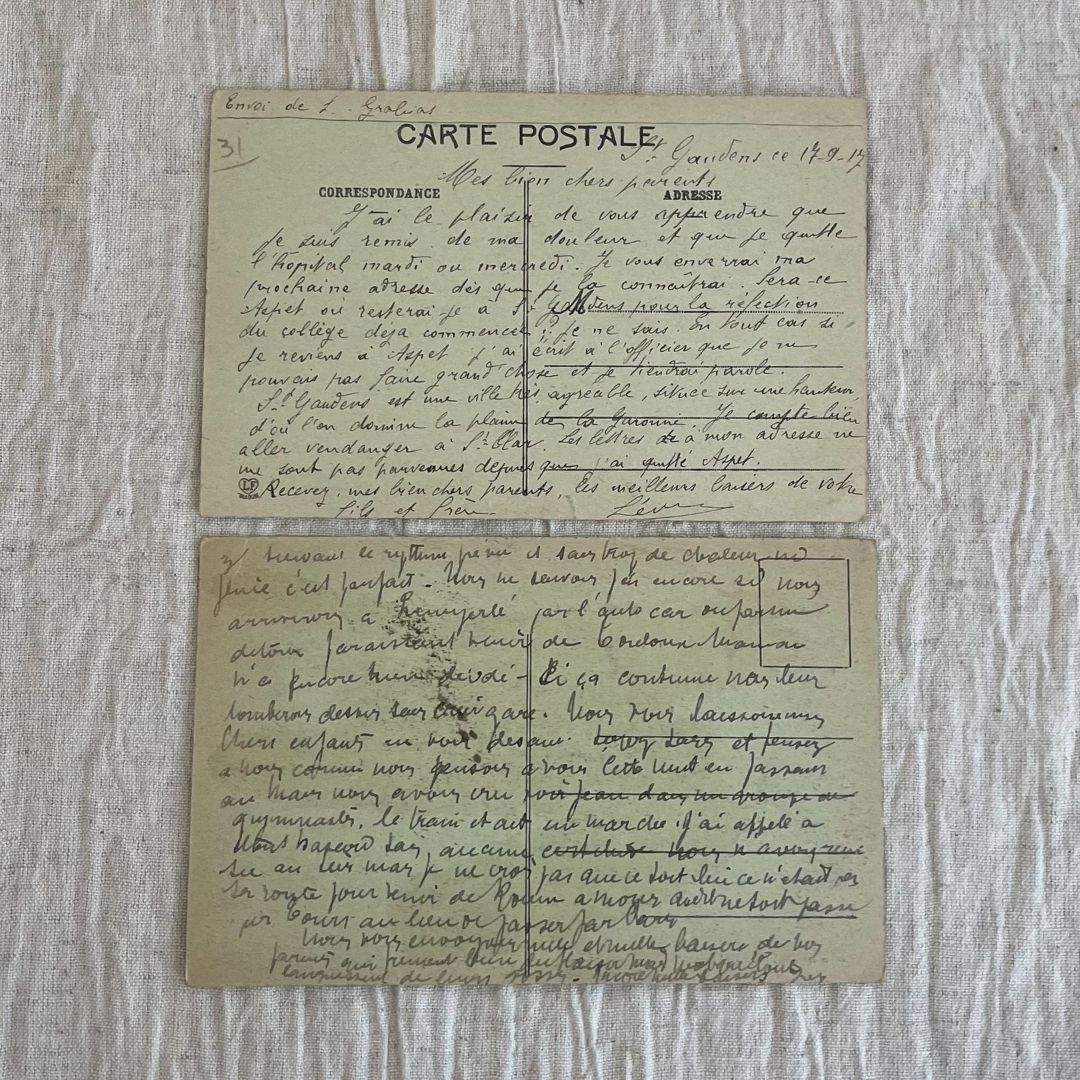 Envoi de L. Grabias
31
CARTE POSTALE
St Gaudens ce 17-9-17
Mes bien chers parents
CORRESPONDANCE
ADRESSE
J'ai le plaisir de vous apprendre que
je suis remis de ma douleur et que je quitte
l'hôpital mardi ou mercredi. Je vous enverrai ma
prochaine adresse dès que je la connaîtrai. Sera-ce
Aspet ou resterai-je à St Gaudens pour la réfection
du collège déjà commencée ?? je ne sais. En tout cas si
je reviens à Aspet j'ai écrit à l'officier que je ne
pouvais pas faire grand chose et je tiendrai parole.
St Gaudens est une ville très agréable, située sur une hauteur,
d'où l'on domine la plaine de la Garonne. Je compte bien
aller vendanger à St Clar. Les lettres à mon adresse ne
me sont pas parvenues depuis que j'ai quitté Aspet.
LF
Recevez, mes bien chers parents, les meilleurs baisers de votre
fils et frère.
suivant le rythme prévu et sans trop de chaleur
c'est parfait - Nous ne savons pas encore si nous
arriverons à par l'auto car ou par un
de Maman
n'a encore rien décidé - Si ça continue nous leur
tomberons dessus sans crier gare. Nous vous laissons mes
chers enfants en vous disant. Soyez et pensez
à nous comme nous pensons à vous Cette nuit en passant
au Mans nous avons cru voir Jean dans un groupe de
gymnastes, le train était en marche. J'ai appelé à
tout hasard sans aucune certitude nous n'avons rien
su au mais je ne crois pas que ce soit lui ce n'était pas
sa route pour venir de Rouen à moins qu'il ne soit passé
par Tours au lieu de passer par Paris
Nous vous envoyons mille et mille baisers de vos
parents qui pensent bien
de leurs encore mille baisers